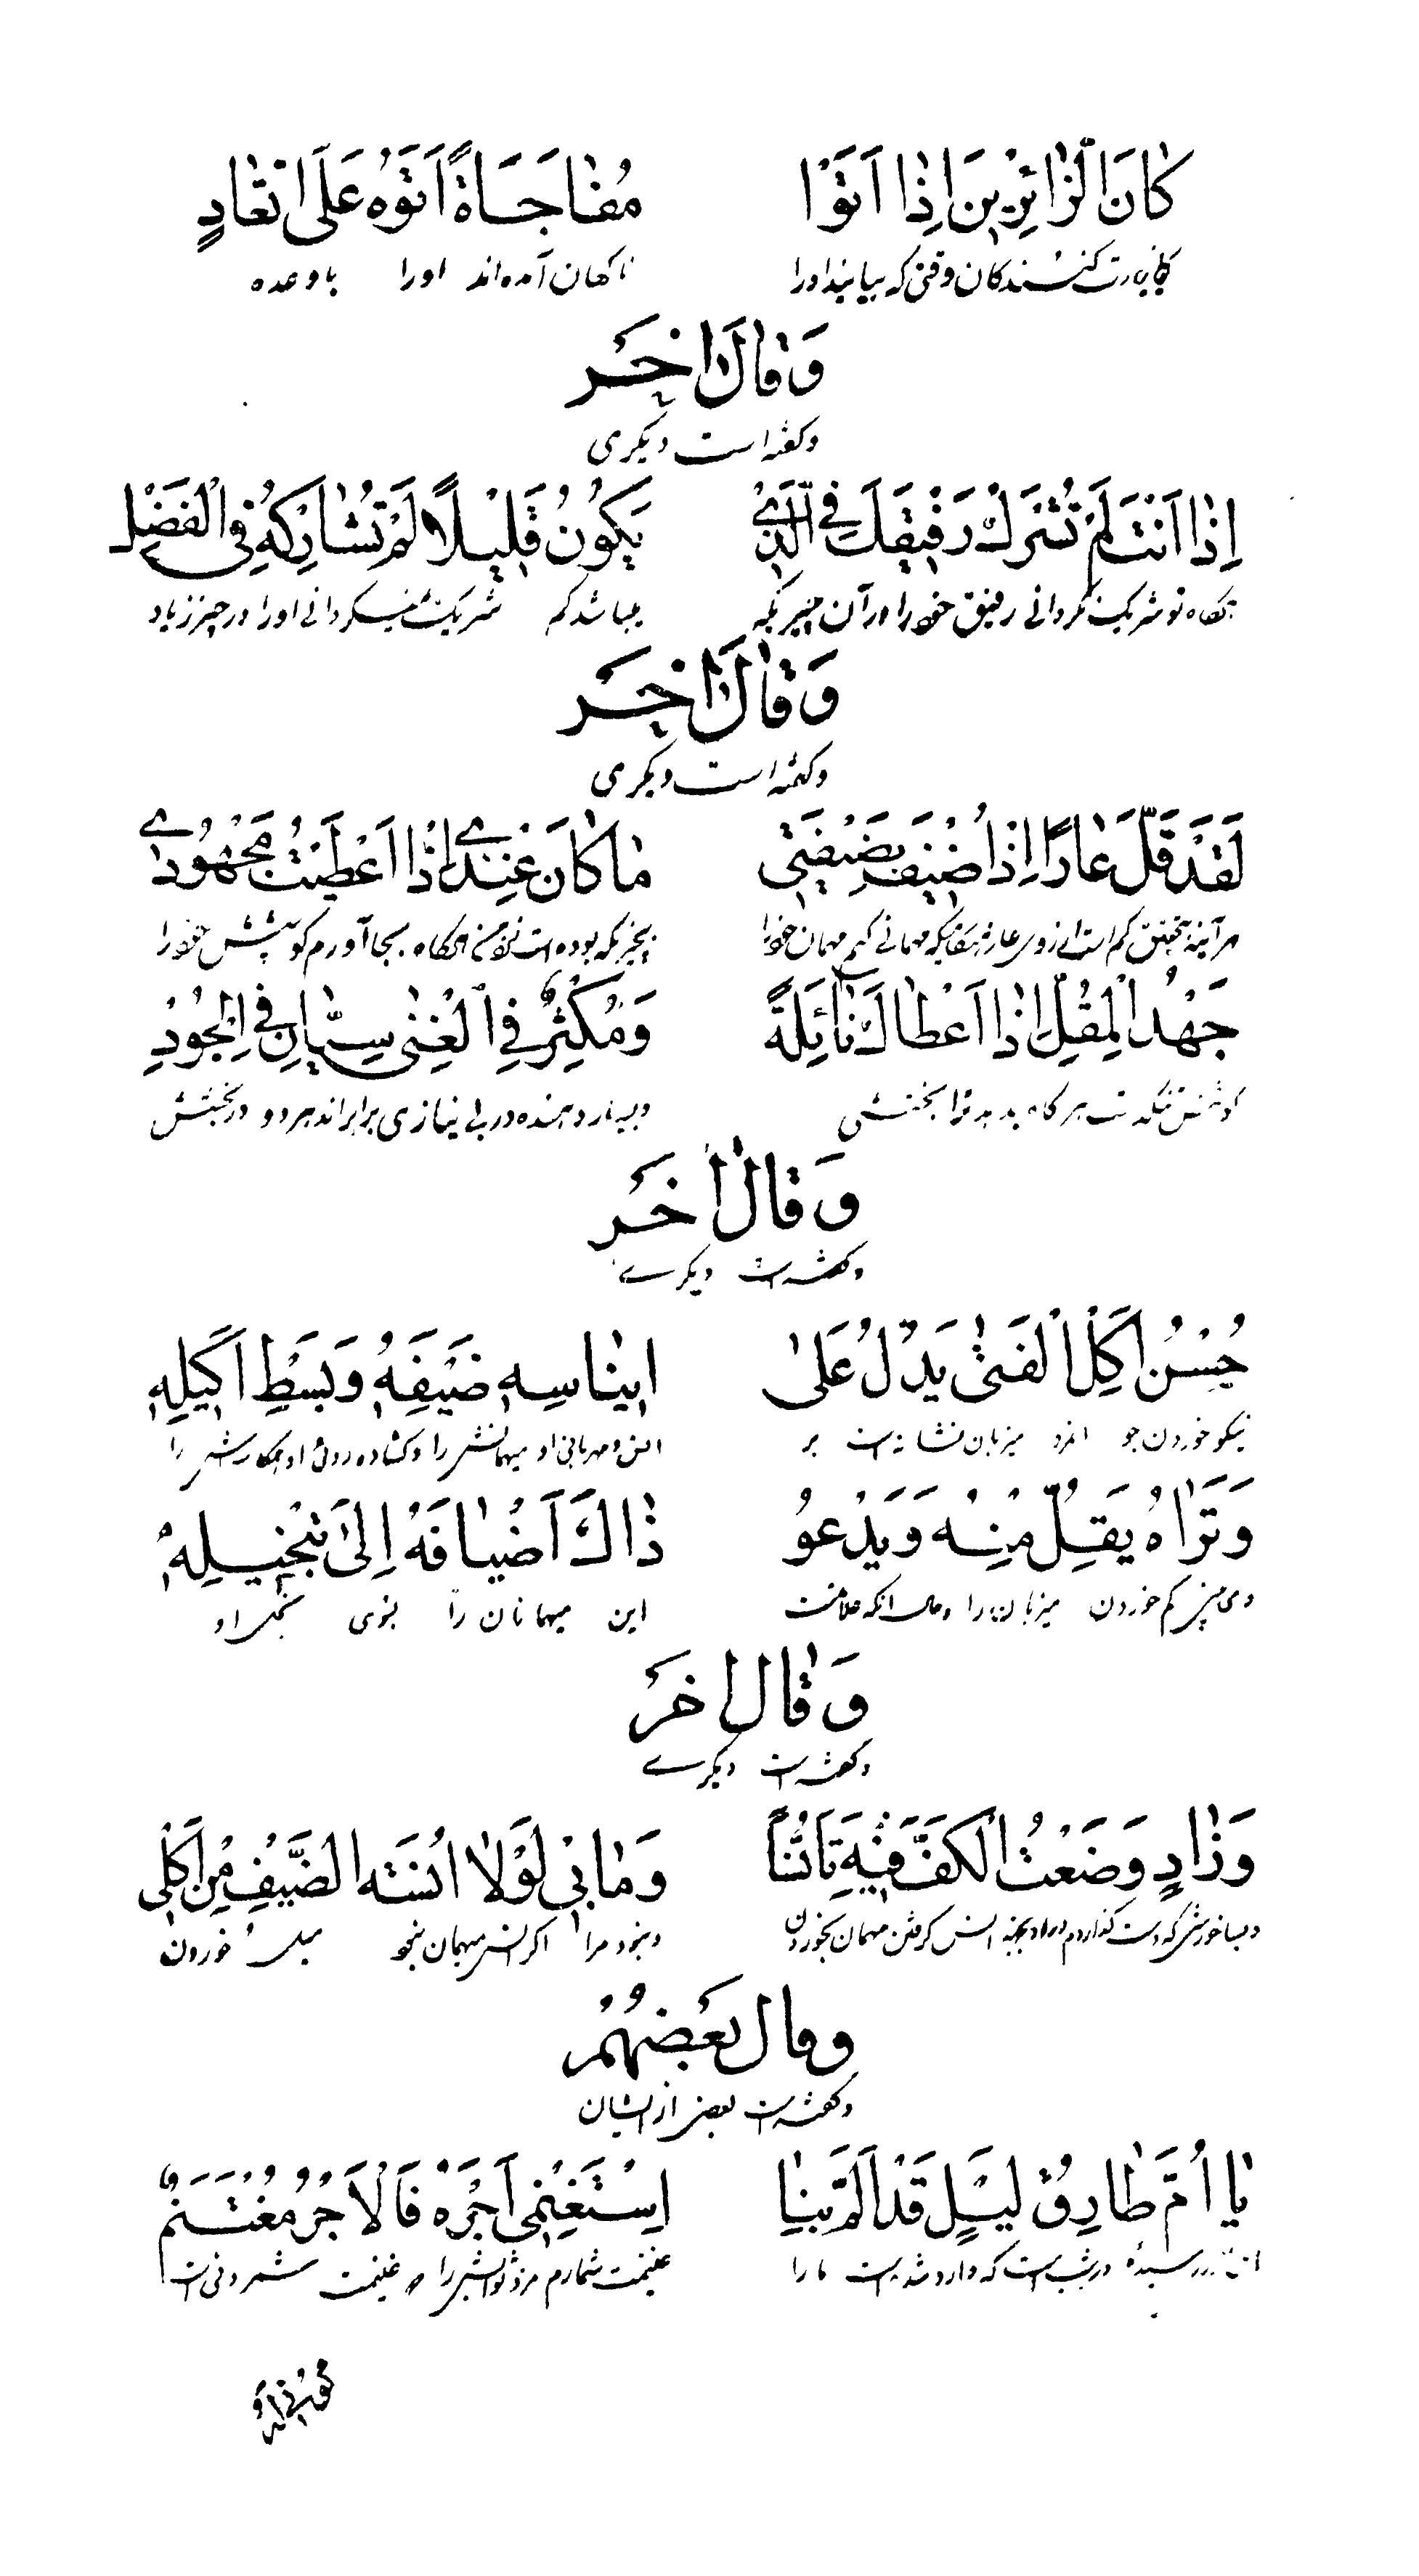 كَانَ الزَّائِرِينَ اِذَا اَتَوْا مُفَاجَاةً اَتَوْهُ عَلَى اتِّعَادٍ
زیارت کنندکان وقتی که بیایند اورا ناکهان آمده‌اند اورا باوعده
وَقَالَ اٰخَر
وکفته است دیکری
اِذَا اَنْتَ لَمْ تُشْرِكْ رَفِيقَكَ فِي الَّذِي يَكُونُ قَلِيلًا لَمْ تُشَارِكْهُ فِي الْفَضْلِ
هرکاه تو شریک نکردانی رفیق خود را در آن چیزیکه میباشد کم شریک نمیکردانی اورا در چیز زیاد
وَقَالَ اٰخَر
وکفته است دیکری
لَقَدْ قَلَّ عَارًا اِذَا ضَيْفٌ تَضَيَّفَنِي مَا كَانَ عِنْدِي اِذَا اَعْطَيْتُ مَجْهُودِي
هرآینه بتحقیق کم است از روی عار مهمان چیزیکه بوده است نزد من هرکاه بجا آورم کوشش خود را
جَهْدُ الْمُقِلِّ اِذَا اَعْطَاكَ نَائِلَةً وَمُكْثِرٌ فِي الْغِنٰى سِيَّانِ فِي الْجُودِ
کوشش تنکدست هرکاه بدهد ترا بخششی وبسیار دهنده در بی نیازی برابراند هردو در بخشش
وَقَالَ اٰخَر
وکفته است دیکرے
حُسْنُ اَكْلِ الْفَتٰى يَدُلُّ عَلٰى اِينَاسِهِ ضَيْفَهُ وَبَسْطِ اَكِيلِهِ
نیکو خوردن جوانمرد میزبان نشانه است بر انس ومهربانی او میهمانش را وکشاده روئی او همکارش را
وَتَرَاهُ يَقِلُّ مِنْهُ وَيَدْعُو ذَاكَ اَضْيَافَهُ اِلٰى تَبْخِيلِهِ
ومی بینی کم خوردن میزبان را وحال انکه این میهمانان را بسوی بخل او
وَقَالَ اٰخَر
وکفته است دیکرے
وَزَادٍ وَضَعْتُ الْكَفَّ فِيهِ تَاَنُّسًا وَمَا بِي لَوْلَا اُنْسَةُ الضَّيْفِ مِنْ اَكْلِي
وبسا خورشی که دست کذاردم انس کرفتن مهمان بخوردن ونبود مرا اکر انس میهمان نبود میل خوردن
وقال بَعْضُهُمْ
وکفته است بعضی از ایشان
يَا اُمَّ طَارِقُ لَيْلٍ قَدْ اَلَمَّ بِنَا اِسْتَغْنِمِي اَجْرَهُ فَالْاَجْرُ مُغْتَنَمٌ
در شب است که وارد شده است ما را غنیمت شمارم مزد ثوابش را غنیمت شمردنی است